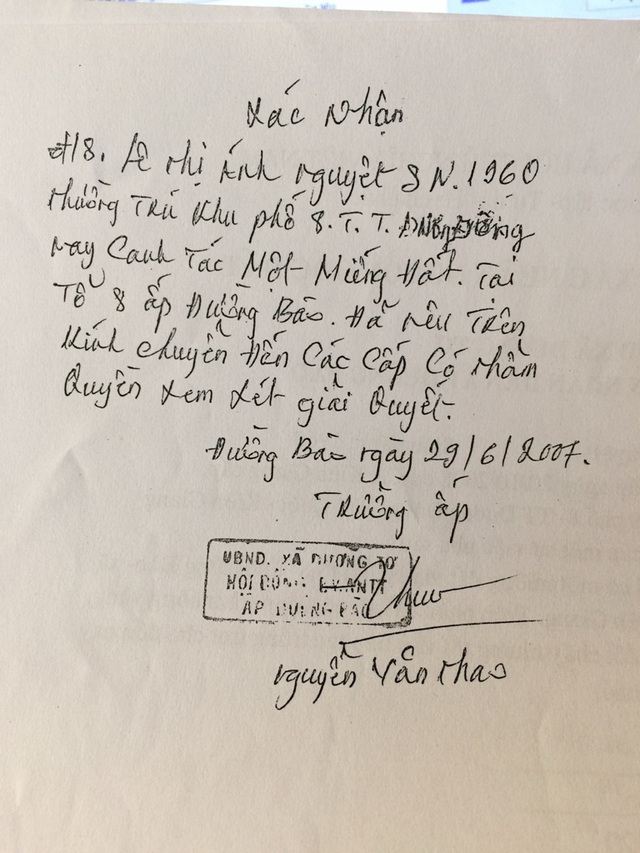 Xác Nhận
Lê Thị Ánh Nguyệt SN. 1960
Thường Trú Khu phố 8. T.T. Dương Đông
Nay Canh Tác Một Miếng Đất. Tại
Tổ 8 ấp Đường Bào. Đã nêu Trên
Kính chuyển Đến Các Cấp Có Thẩm
Quyền Xem Xét giải Quyết.
Đường Bào ngày 29/6/2007.
Trưởng ấp
UBND. XÃ DƯƠNG TƠ
HỘI ĐỒNG ANTT
ẤP ĐƯỜNG BÀO
Nguyễn Văn Thao